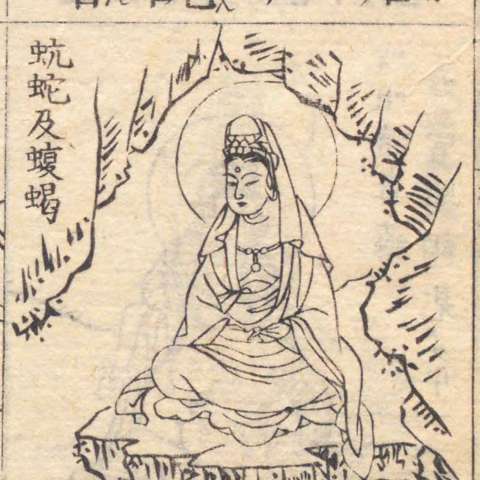 蚖蛇及蝮蝎